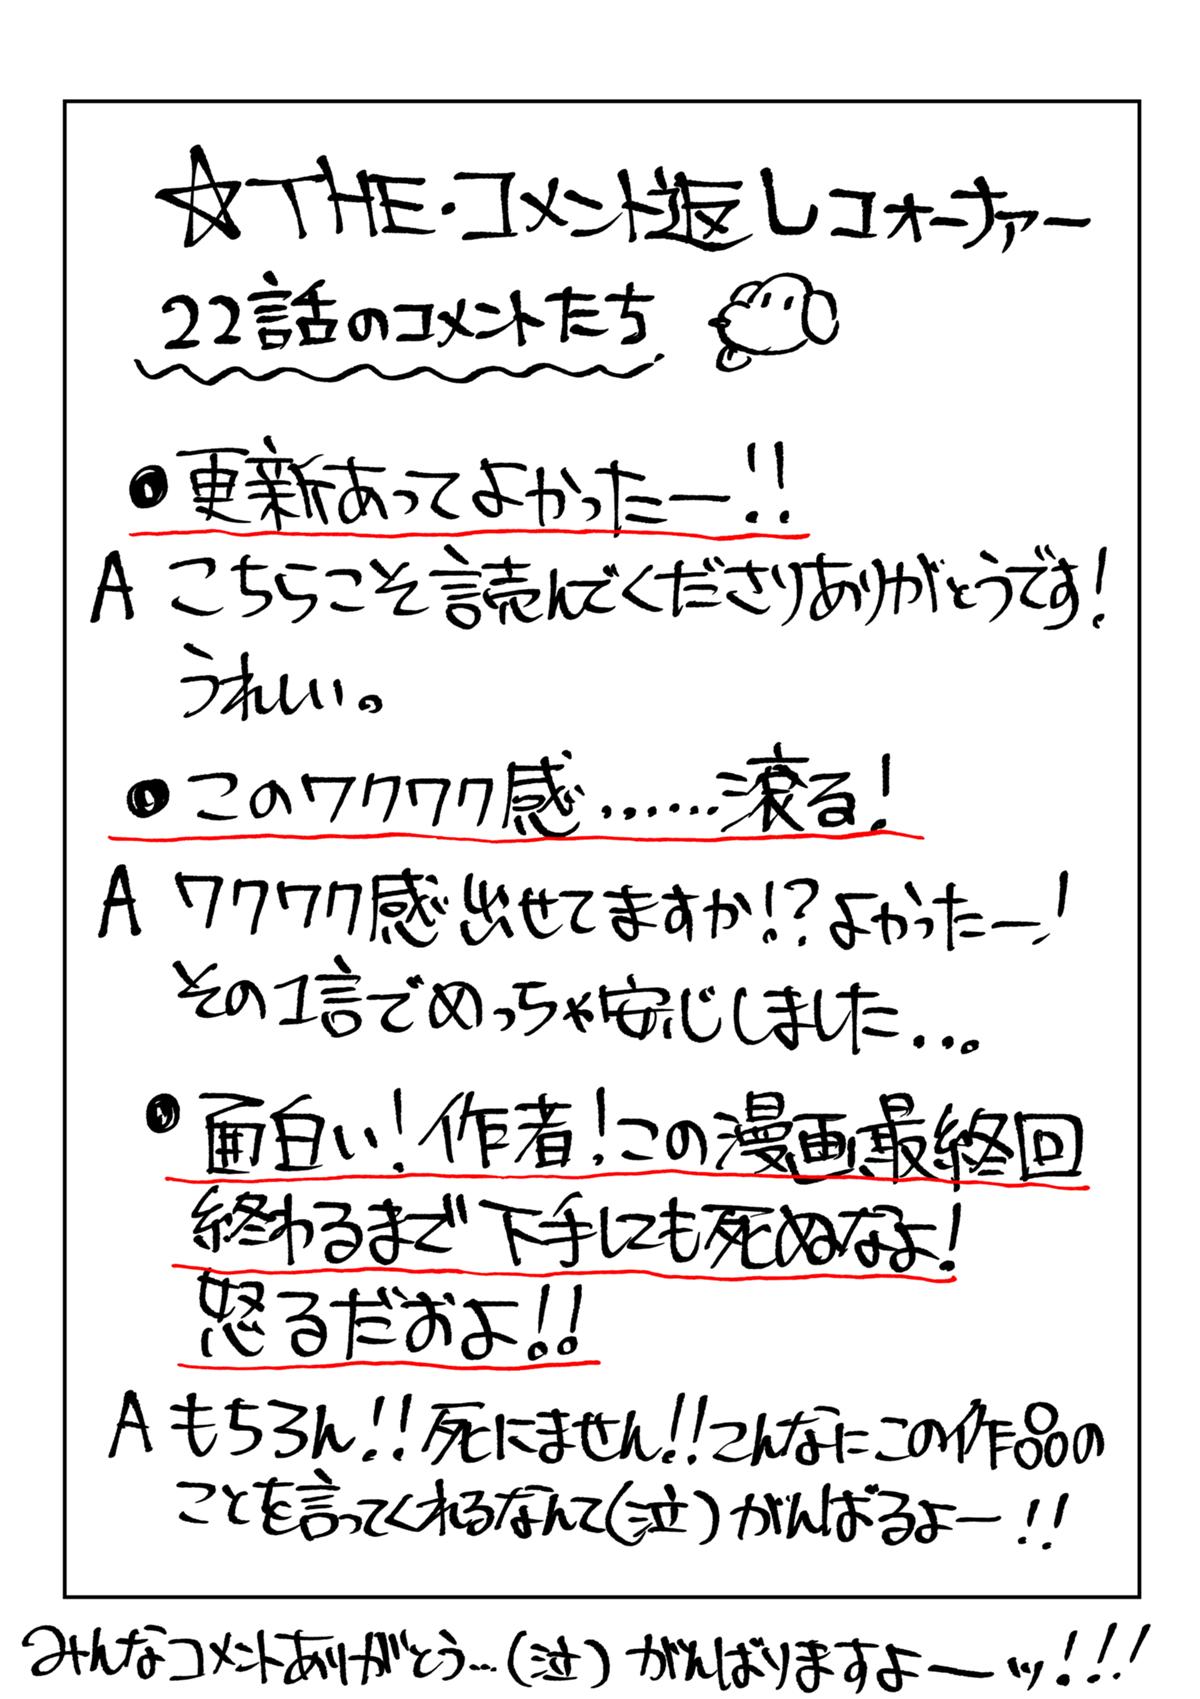 ☆THE・コメント返しコォーナァー
22話のコメントたち
●更新あってよかったー!!
A こちらこそ読んでくださりありがとうです!
うれしい。
●このワクワク感……滾る!
A ワクワク感出せてますか!?よかったー!
その1言でめっちゃ安じしました...。
●面白い!作者!この漫画最終回
終わるまで下手にも死ぬなよ!
怒るだおよ!!
A もちろん!!死にません!!こんなにこの作品の
ことを言ってくれるなんて(泣)がんばるよー!!
みんなコメントありがとう...(泣)がんばりますよーッ!!!